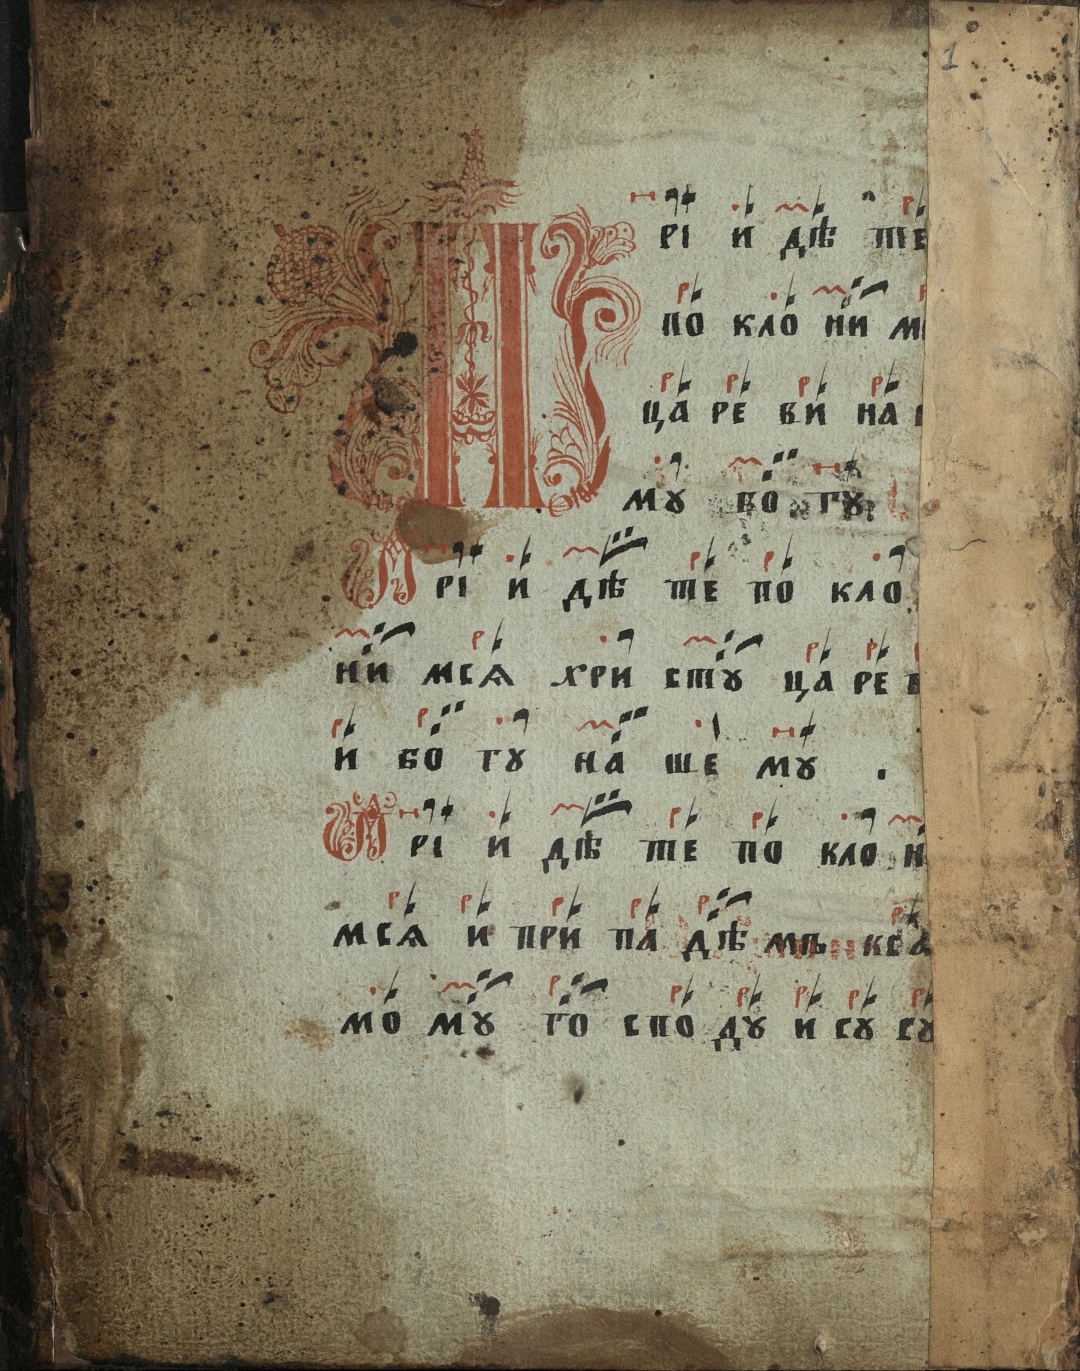 1
П рі и дѣ те
по кло ни м
ца ре ви на
му бо гу
П рі и дѣ те по кло
ни мсѧ хри сту ца ре в
и бо гу на ше му .
П рі и дѣ те по кло н
мсѧ и при па дѣ мъ
мо му го спо ду и су су